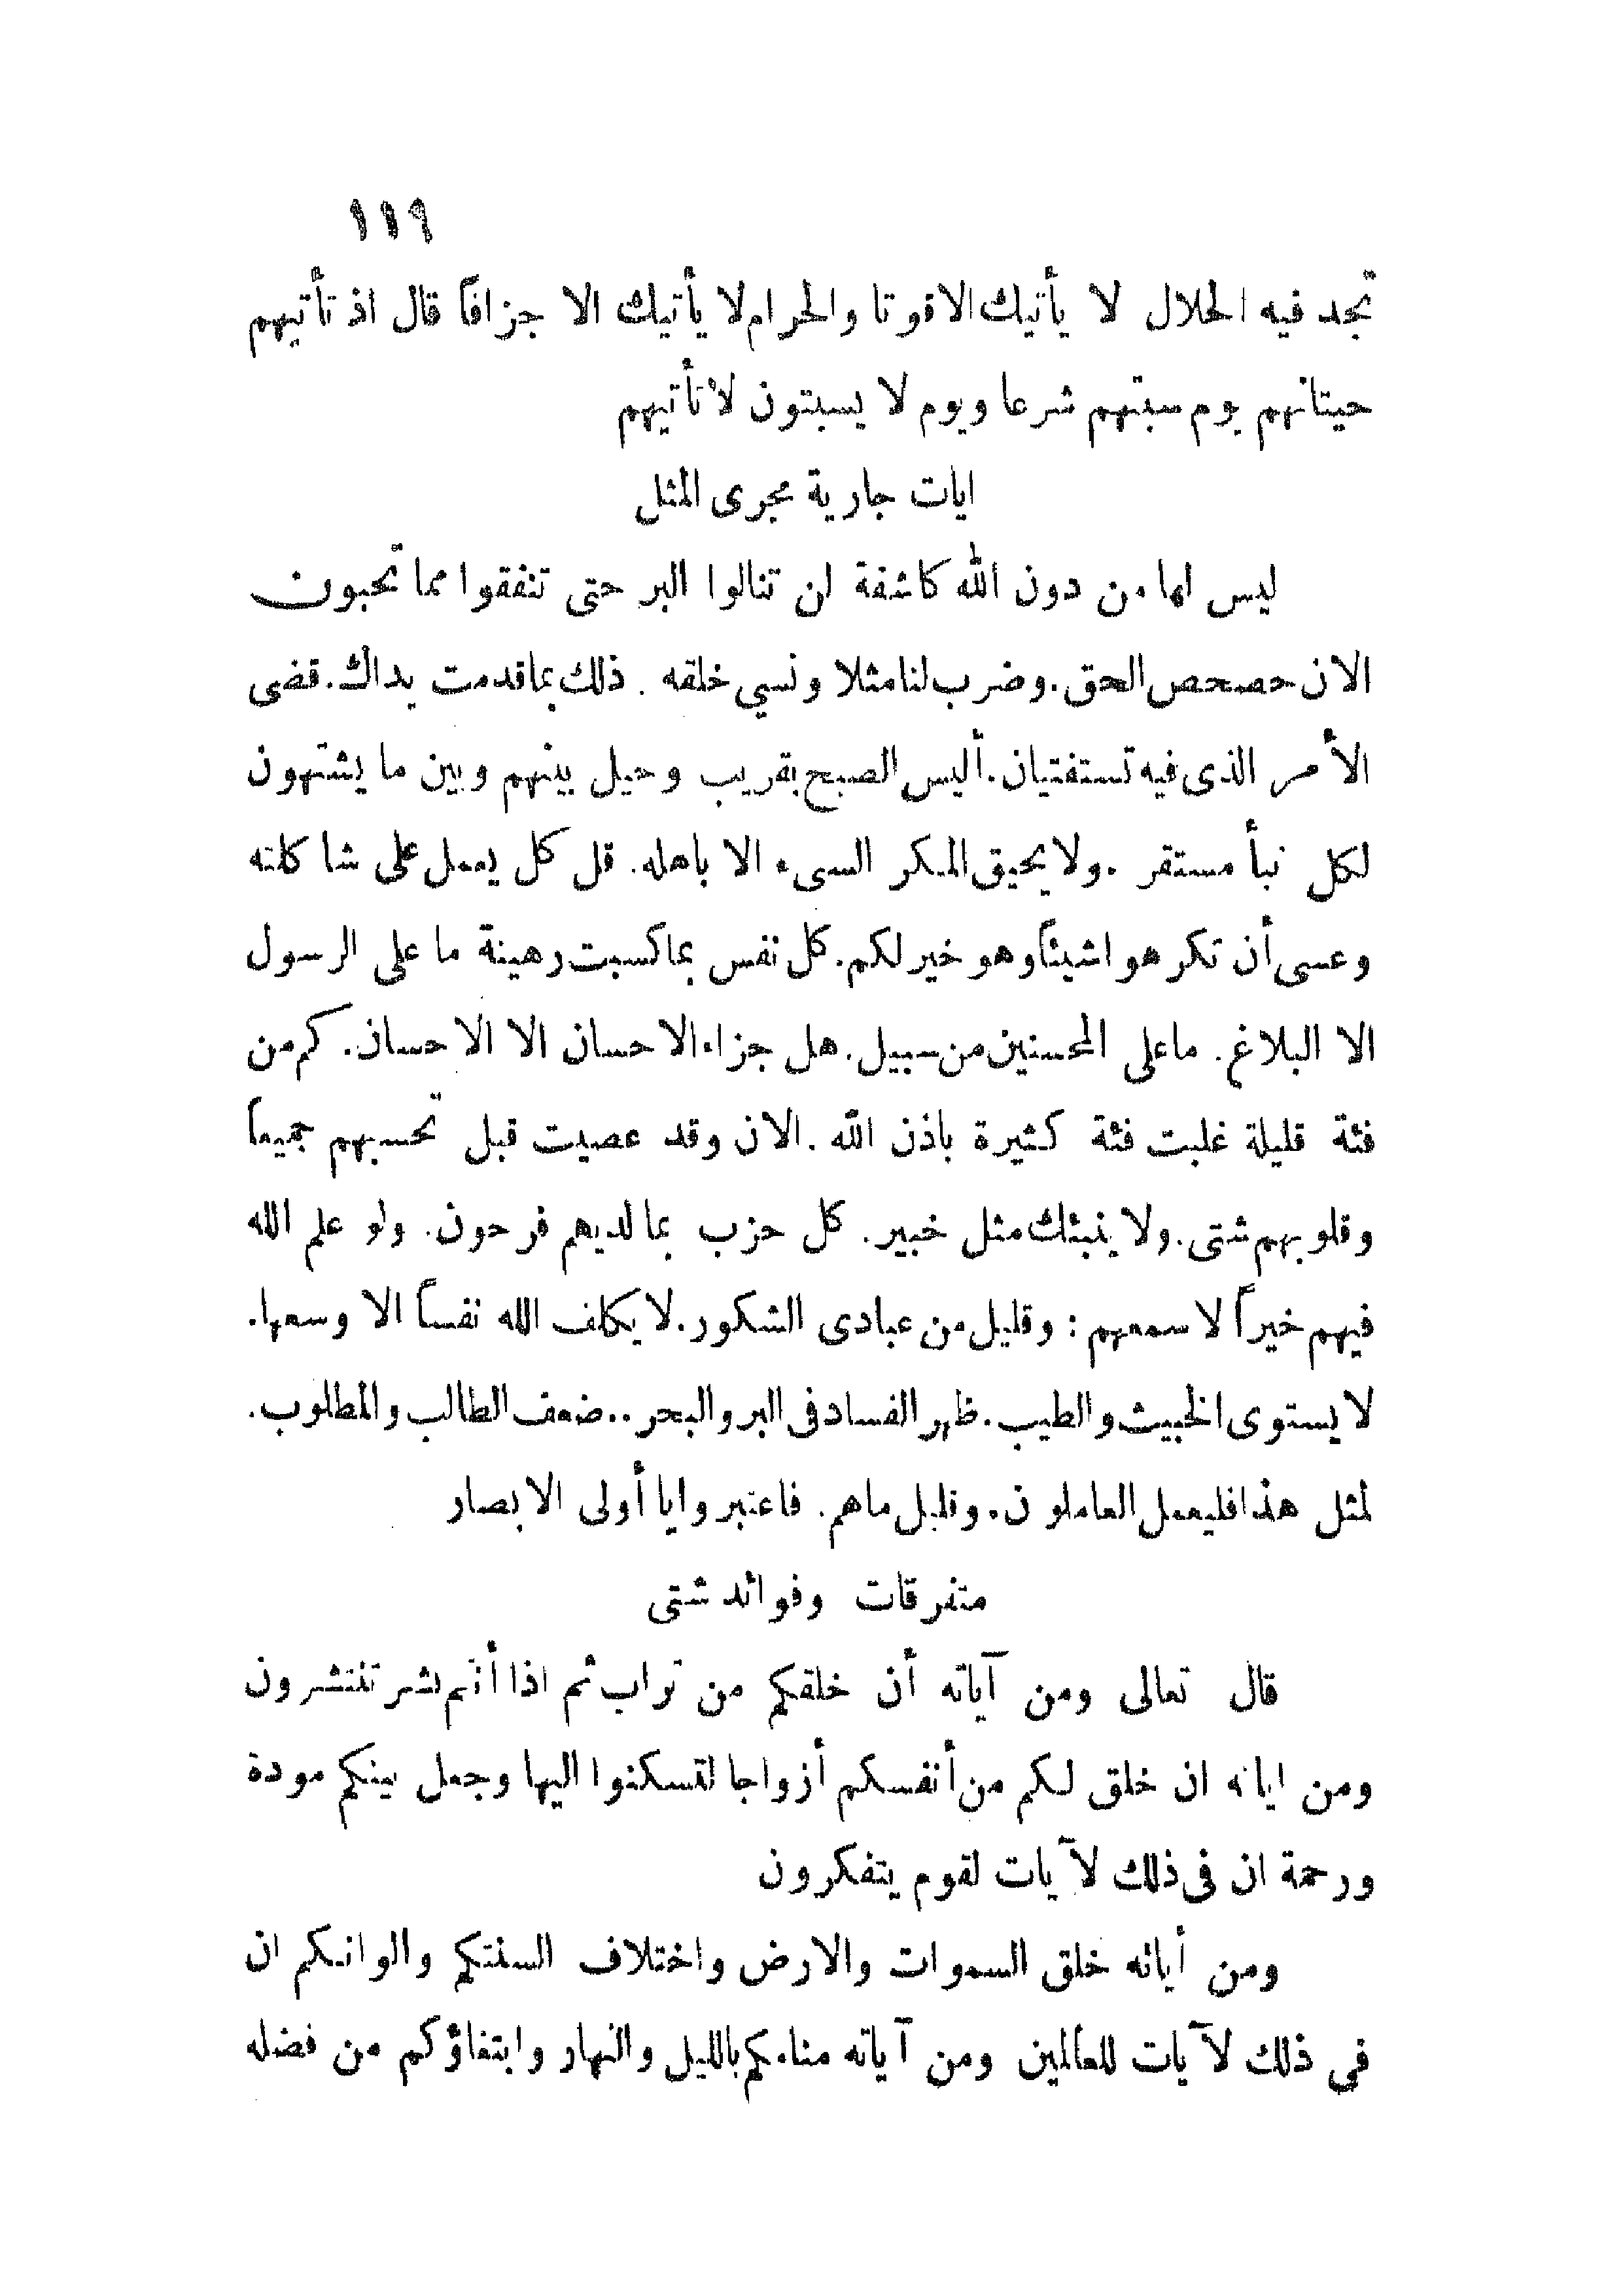 ١١٩
تجد فيه الحلال لا يأتيك الا قوتا والحرام لا يأتيك الا جزافاً قال اذ تأتيهم
حيتانهم يوم سبتهم شرعا ويوم لا يسبتون لا تأتيهم
ايات جارية مجرى المثل
ليس لها من دون الله كاشفة لن تنالوا البر حتى تنفقوا مما تحبون
الان حصحص الحق. وضرب لنا مثلا ونسي خلقه. ذلك بما قدمت يداك. قضى
الأمر الذى فيه تستفتيان. أليس الصبح بقريب وحيل بينهم وبين ما يشتهون
لكل نبأ مستقر. ولا يحيق المكر السىء الا باهله. قل كل يعمل على شاكلته
وعسى أن تكرهوا شيئاً وهو خير لكم. كل نفس بما كسبت رهينة ما على الرسول
الا البلاغ. ما على المحسنين من سبيل. هل جزاء الاحسان الا الاحسان. كم من
فئة قليلة غلبت فئة كثيرة باذن الله. الان وقد عصيت قبل تحسبهم جميعاً
وقلوبهم شتى. ولا ينبئك مثل خبير. كل حزب بما لديهم فرحون. ولو علم الله
فيهم خيراً لاسمعهم: وقليل من عبادى الشكور. لا يكلف الله نفساً الا وسعها.
لا يستوى الخبيث والطيب. ظهر الفساد فى البر والبحر.. ضعف الطالب والمطلوب.
لمثل هذا فليعمل العاملون. وقليل ماهم. فاعتبروا يا أولى الابصار
متفرقات وفوائد شتى
قال تعالى ومن آياته أن خلقكم من تراب ثم اذا أنتم بشر تنتشرون
ومن اياته ان خلق لكم من أنفسكم أزواجا لتسكنوا اليها وجعل بينكم مودة
ورحمة ان فى ذلك لآيات لقوم يتفكرون
ومن أياته خلق السموات والارض واختلاف السنتكم والوانكم ان
في ذلك لآيات للعالمين ومن آياته منامكم بالليل والنهار وابتغاؤكم من فضله